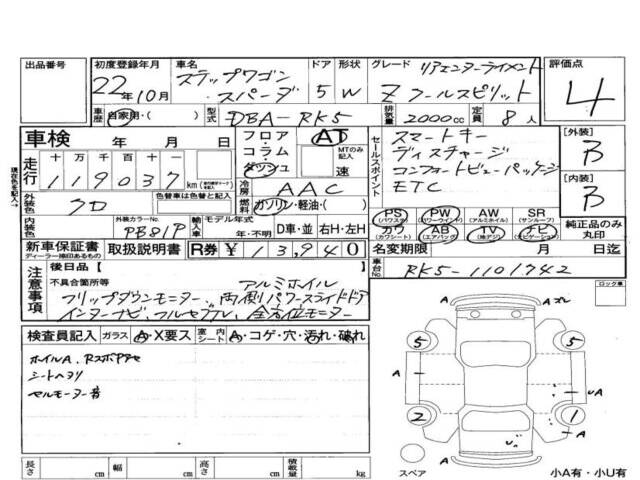 出品番号 初度登録年月 車名 ドア 形状 グレード 評価点
ステップワゴン リアエンターテイメント
22年10月 スパーダ 5 W Z クールスピリット 4
車歴 自家用・( ) 型式 DBA-RK5 排気量 2000cc 定員 8人
車検 年 月 日 フロア・コラム・ダッシュ AT MTのみ記入 速
走行 十万 万 千 百 十 一
119037 km
冷房 AAC
現在色を記入→ 外装色 クロ 色替車は色替と記入 燃料 ガソリン・軽油・( )
内装色 外装カラーNo. PB81P 輸入車 モデル年式 年・不明 D車・並 右H・左H
セールスポイント スマートキー
ディスチャージ
コンフォートビューパッケージ
ETC
[外装] B
[内装] B
PS (パワステ) PW (パワーウィンドウ) AW (アルミホイル) SR (サンルーフ)
カワ (カワシート) AB (エアバッグ) TV (地デジ) ナビ (ナビゲーション) 純正品のみ丸印
新車保証書 ディーラー捺印あるもの 取扱説明書 R券 ¥13,940 名変期限 月 日迄
車台No. RK5-1101742
注意事項 後日品 [ ]
不具合箇所等 アルミホイル
フリップダウンモニター、両側パワースライドドア
インターナビ、フルセグTV、全方位モニター
ロック車
検査員記入 ガラス A・X要ス 室内シート A・コゲ・穴・汚れ・破れ
ホイルA、
シートヘタリ
セルモーター音
A A
5 5
A A UA
2 1
U
A
スペア 小A有・小U有
長さ cm 幅 cm 高さ cm 積載量 kg